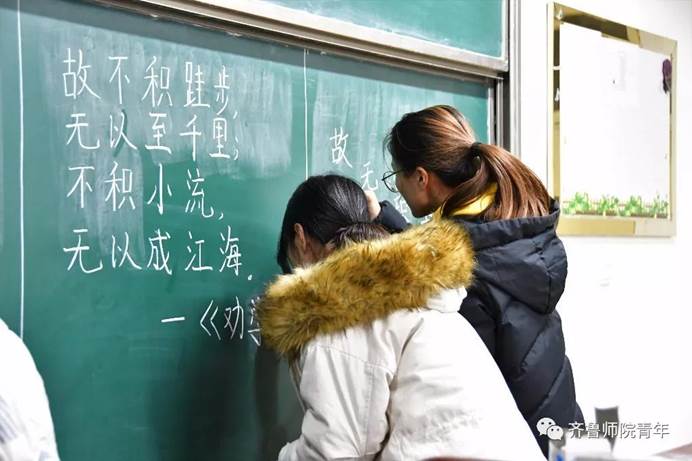 故不积跬步,
无以至千里;
不积小流,
无以成江海.
—《劝
故
无
齐鲁师院青年